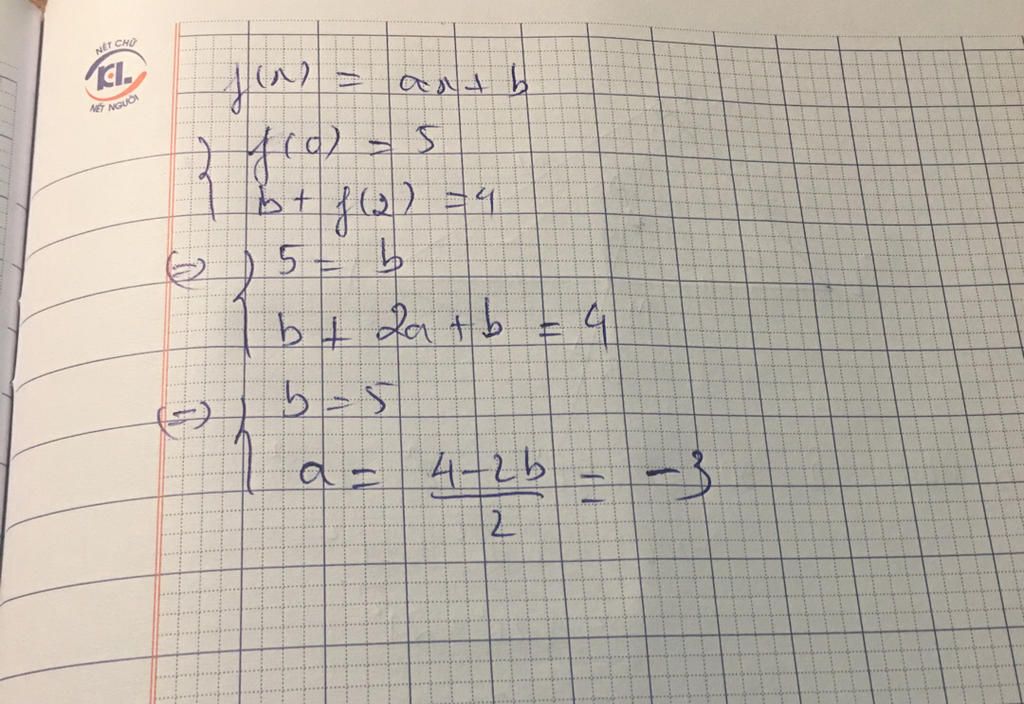 NÉT CHỮ
KL
NẾT NGƯỜI
f(x) = ax + b
{ f(0) = 5
b + f(2) = 4
(=) { 5 = b
b + 2a + b = 4
(=) { b = 5
a = (4-2b)/2 = -3